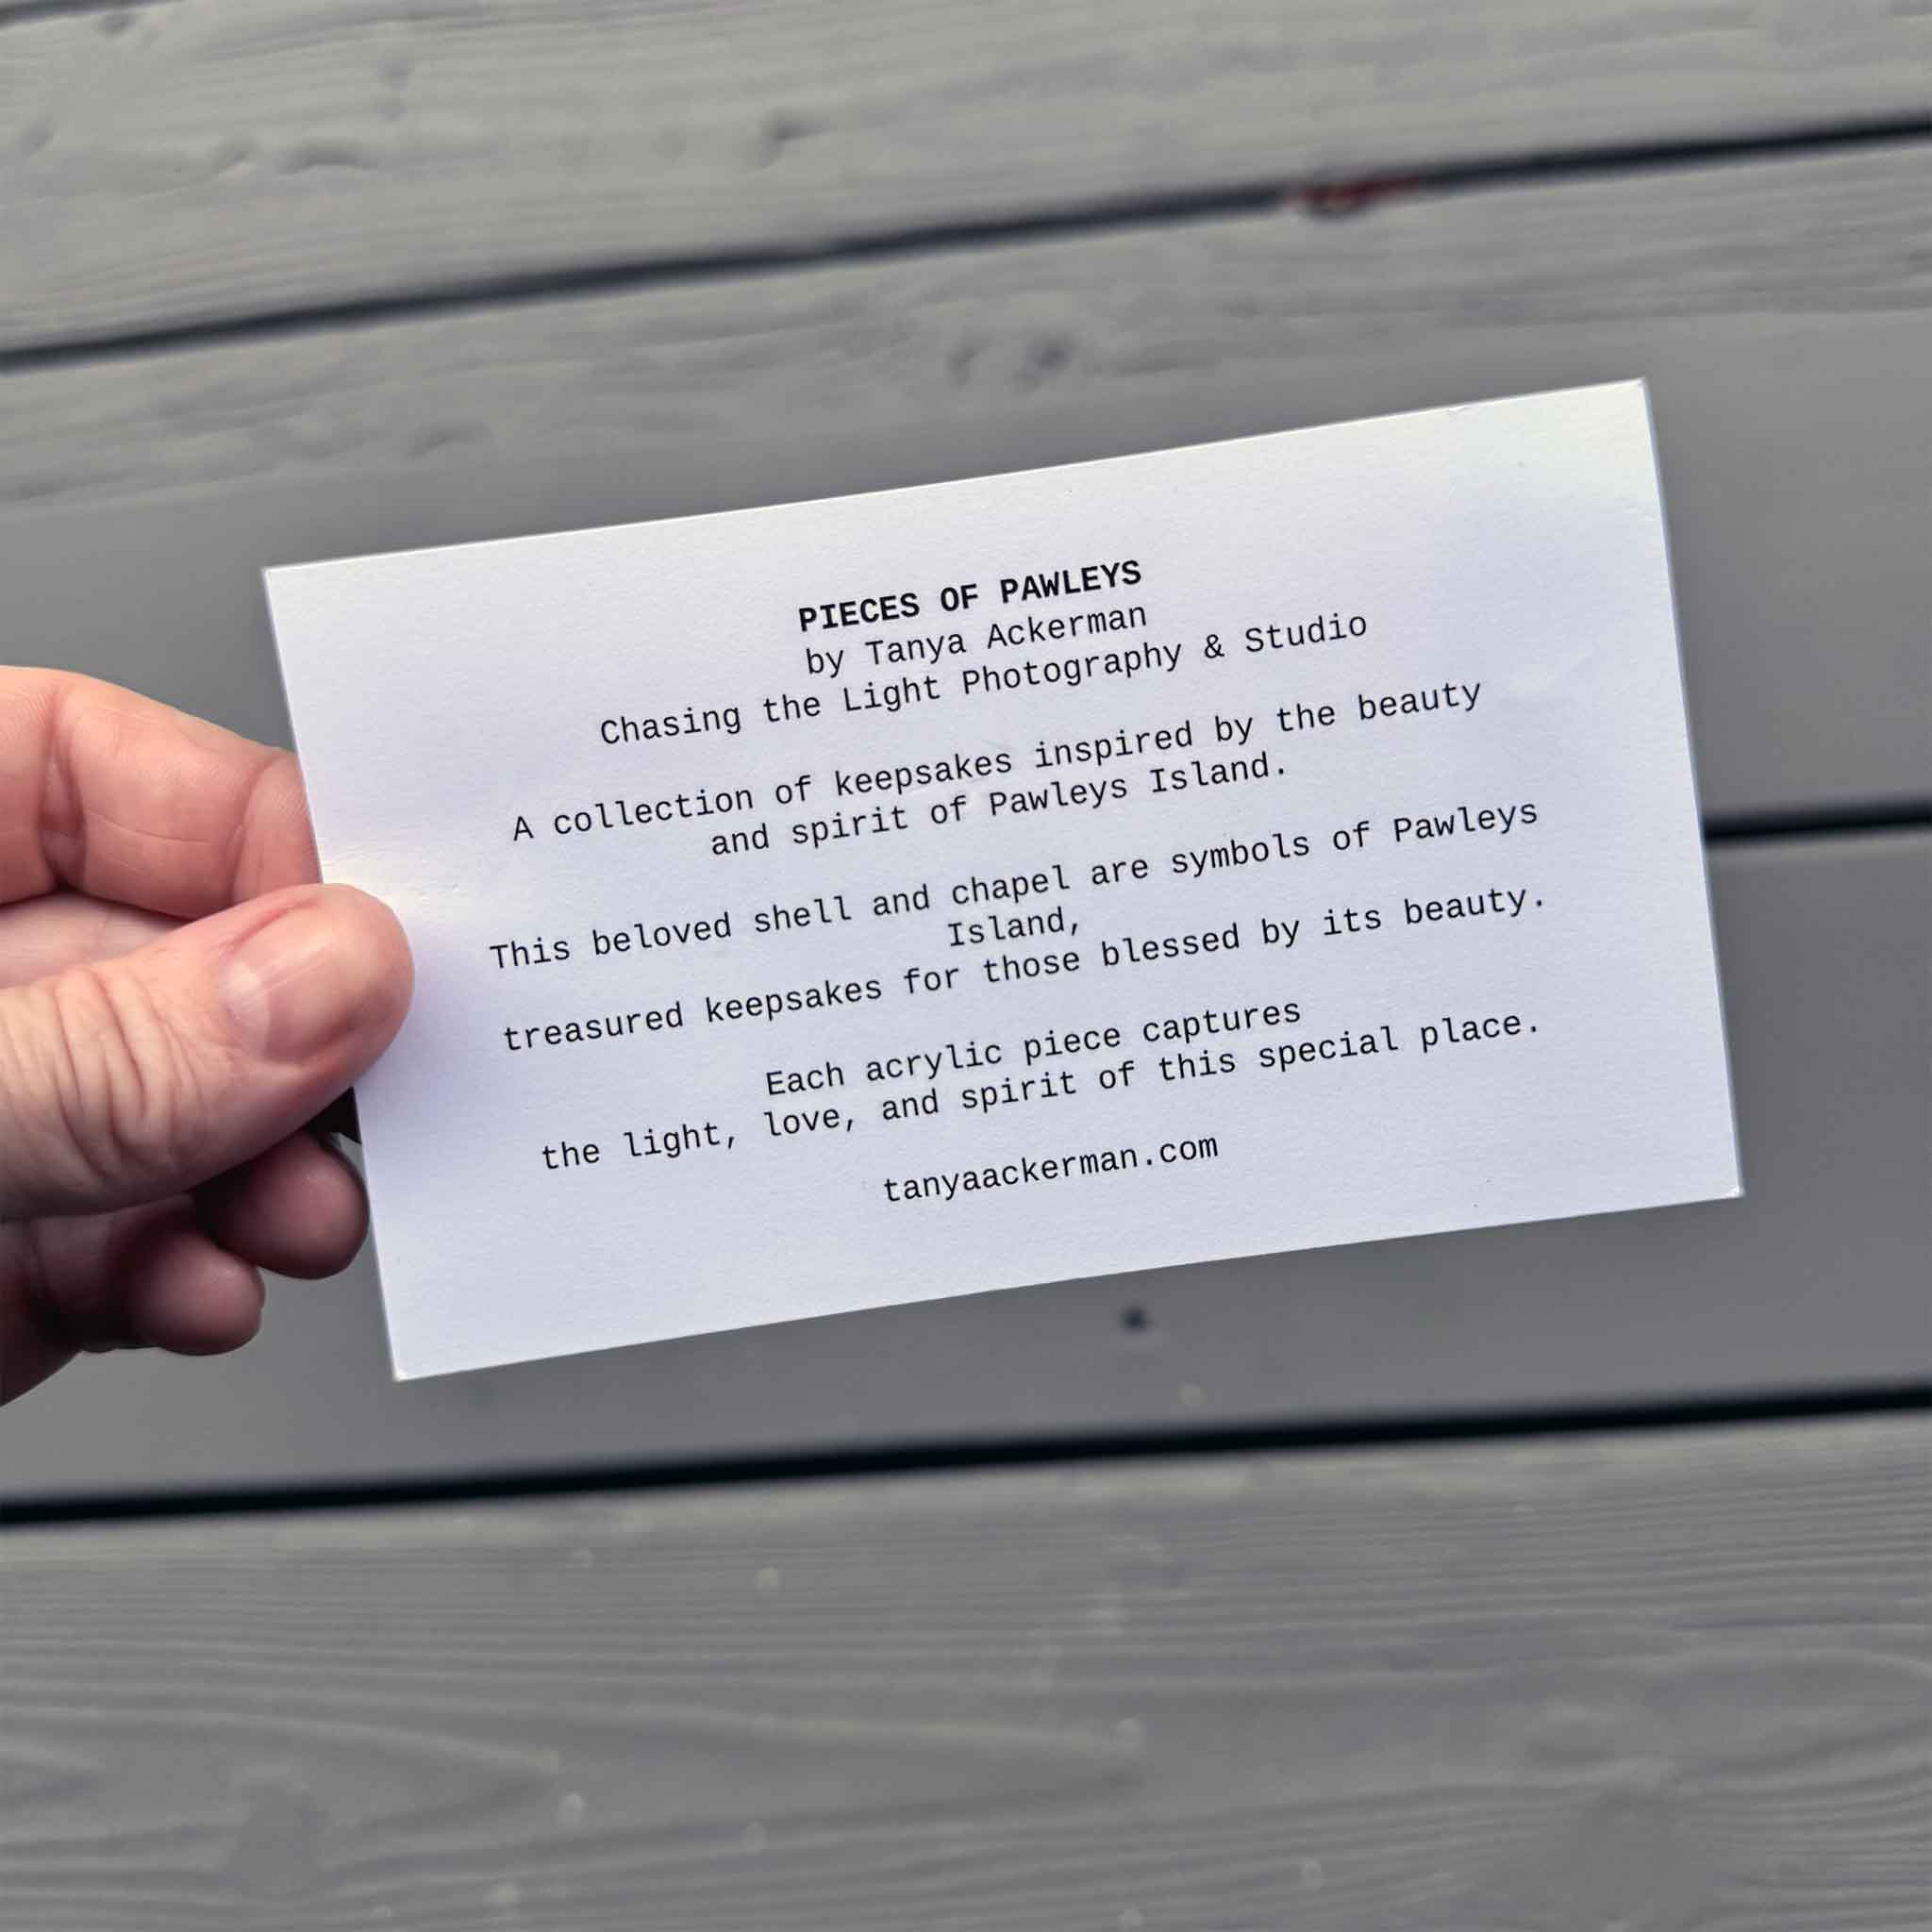 PIECES OF PAWLEYS
by Tanya Ackerman
Chasing the Light Photography & Studio
A collection of keepsakes inspired by the beauty
and spirit of Pawleys Island.
This beloved shell and chapel are symbols of Pawleys
Island,
treasured keepsakes for those blessed by its beauty.
Each acrylic piece captures
the light, love, and spirit of this special place.
tanyaackerman.com